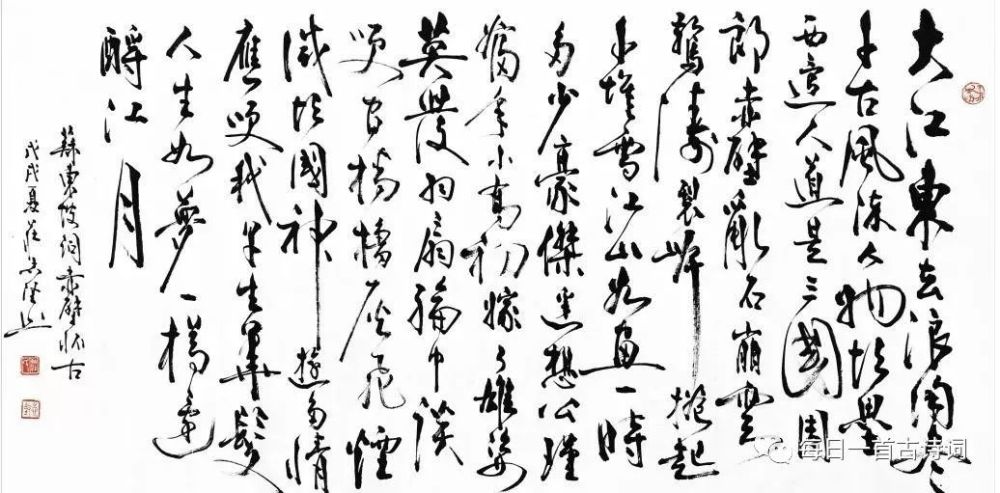 大江東去浪淘盡
千古風流人物故壘
西邊人道是三國周
郎赤壁亂石崩雲
驚濤裂岸捲起
千堆雪江山如畫一時
多少豪傑遙想公瑾
當年小喬初嫁了雄姿
英發羽扇綸巾談
笑間檣櫓灰飛煙
滅故國神遊多情
應笑我早生華髮
人生如夢一樽還
酹江月
蘇東坡詞赤壁懷古
戊戌夏
每日一首古诗词